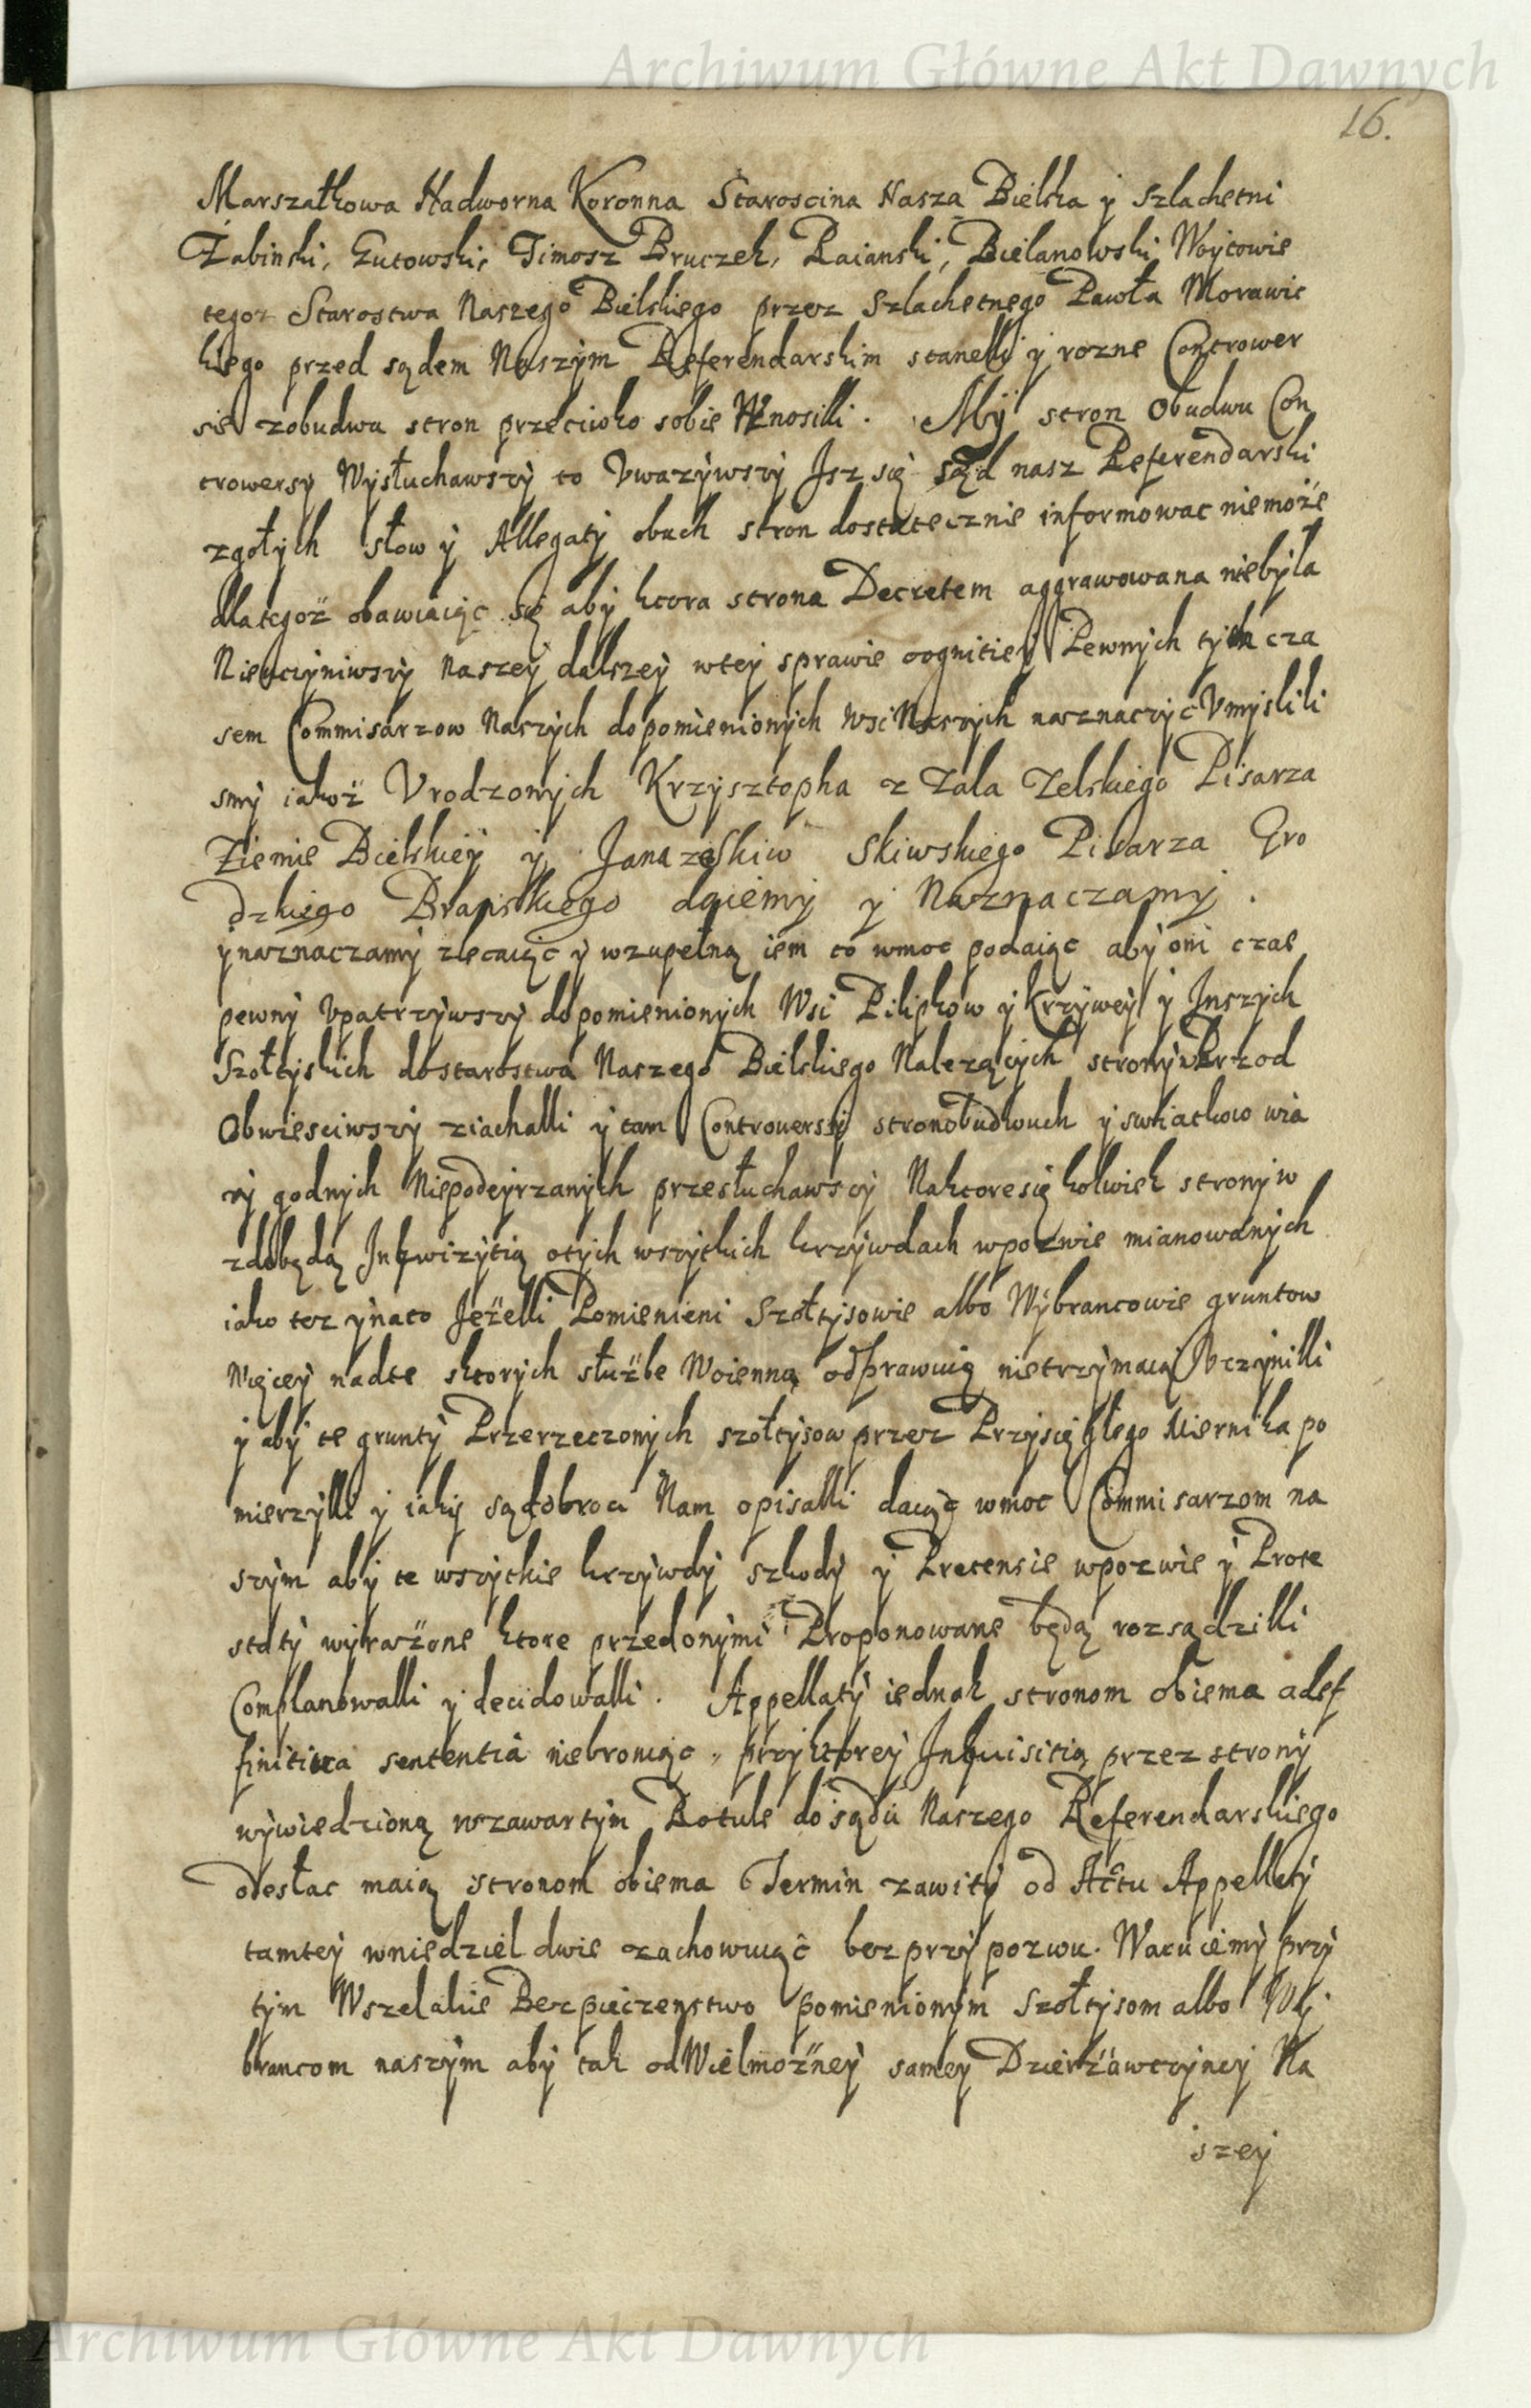 Archiwum Główne Akt Dawnych
16.
Marszałkowa Nadworna Koronna Staroscina Nasza Bielska y Szlachetni
Żabinski, Gutowski, Timosz Bruczek, Raianski, Bielanowski Woÿtowie
tegoz Starostwa Naszego Bielskiego przez Szlachetnego Pawła Morawic
kiego przed sądem Naszÿm Referendarskim stanelli y rozne Contrower
sie zobudwu stron przeciwko sobie Wznosilli. Mÿ stron Obudwu Con
trowersÿ Wÿsłuchawszÿ to Vwazÿwszÿ Jsz się sąd nasz Referendarski
zgołÿch słow ÿ Allegatÿ obuch stron dostatecznie informowac niemoże
dlategoż obawiaiąc się abÿ ktora strona Decretem aggrawowana niebÿla
Nieuczÿniwszÿ naszeÿ dalszeÿ wteÿ sprawie cognitieÿ Pewnÿch tÿm cza
sem Commisarzow Naszÿch dopomienionÿch wsi Naszÿch naznaczÿc Vmÿslili
smÿ iakoż Vrodzonÿch Krzÿsztopha z Zala Zelskiego Pisarza
Ziemie Bielskieÿ ÿ Jana ze Skiw Skiwskiego Pisarza Gro
dzkiego Branskiego daiemÿ ÿ Naznaczamÿ.
ÿnaznaczamÿ zlecaiąc ÿ wzupełną iem to wmoc podaiąc abÿ oni czas
pewnÿ Vpatrzÿwszÿ dopomienionÿch Wsi Pilipkow ÿ Krzÿweÿ ÿ Jnszÿch
Szołtÿskich dostarostwa Naszego Bielskiego Nalezącÿch stronÿ wprzod
Obwiesciwszÿ ziachalli ÿ tam Controversÿ stron obudwuch ÿ swiatkow wia
rÿ godnÿch Niepodeÿrzanÿch przesłuchawszÿ Naktore się kolwiek stronÿ w
zdobędą Jnkwizÿtią otÿch wszÿtkich krzÿwdach wpozwie mianowanÿch
iako tez ÿnato Jeżelli Pomienieni Szołtÿsowie albo Wÿbrancowie gruntow
Więceÿ nadte sktorÿch służbe Woienną odprawuią nietrzÿmaią Vczÿnilli
ÿ abÿ te gruntÿ Przerzeczonÿch szołtÿsow przez Przÿsięgłego Miernika po
mierzÿlli ÿ iakiÿ są dobroci Nam opisalli daiąc wmoc Commisarzom na
szÿm abÿ te wszÿtkie krzÿwdÿ szkodÿ ÿ Pretensie wpozwie ÿ Prote
statÿ wÿrażone ktore przedonÿmi Proponowane będą rozsądzilli
Complanowalli ÿ decidowalli. Appellatÿ iednak stronom obiema a def
finitiua sententia niebroniąc, prz̈ÿktoreÿ Jnkuisitią przez stronÿ
wÿwiedzioną wzawartÿm Rotule do sądu Naszego Referendarskiego
odesłac maią stronom obiema Termin zawitÿ od Actu Appellatÿ
tamteÿ wniedziel dwie zachowuiąc bez przÿpozwu. Waruiemÿ przÿ
tÿm Wszelakie Bezpieczenstwo pomienionÿm Szołtÿsom albo Wÿ
brancom naszÿm abÿ tak od Wielmożneÿ sameÿ Dzierżawczÿneÿ Na
szeÿ
Archiwum Główne Akt Dawnych